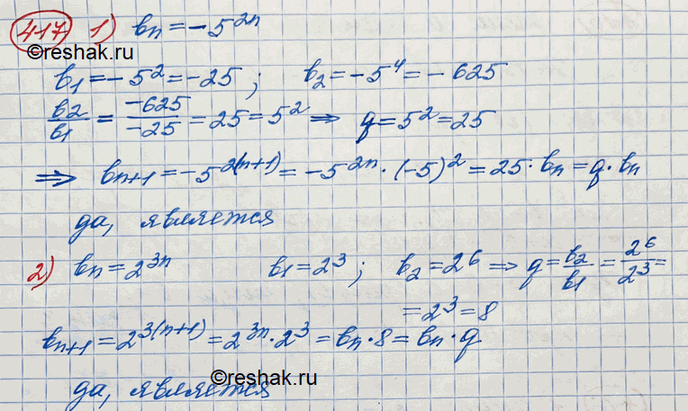 417 1) bn = -5^{2n}
©reshak.ru
b₁ = -5² = -25; b₂ = -5⁴ = -625
b₂/b₁ = -625/-25 = 25 = 5² ⇒ q = 5² = 25
⇒ bn+1 = -5^{2(n+1)} = -5^{2n} · (-5)² = 25 · bn = q · bn
да, является
2) bn = 2^{3n} b₁ = 2³; b₂ = 2⁶ ⇒ q = b₂/b₁ = 2⁶/2³ =
= 2³ = 8
bn+1 = 2^{3(n+1)} = 2^{3n} · 2³ = bn · 8 = bn · q
©reshak.ru
да, является